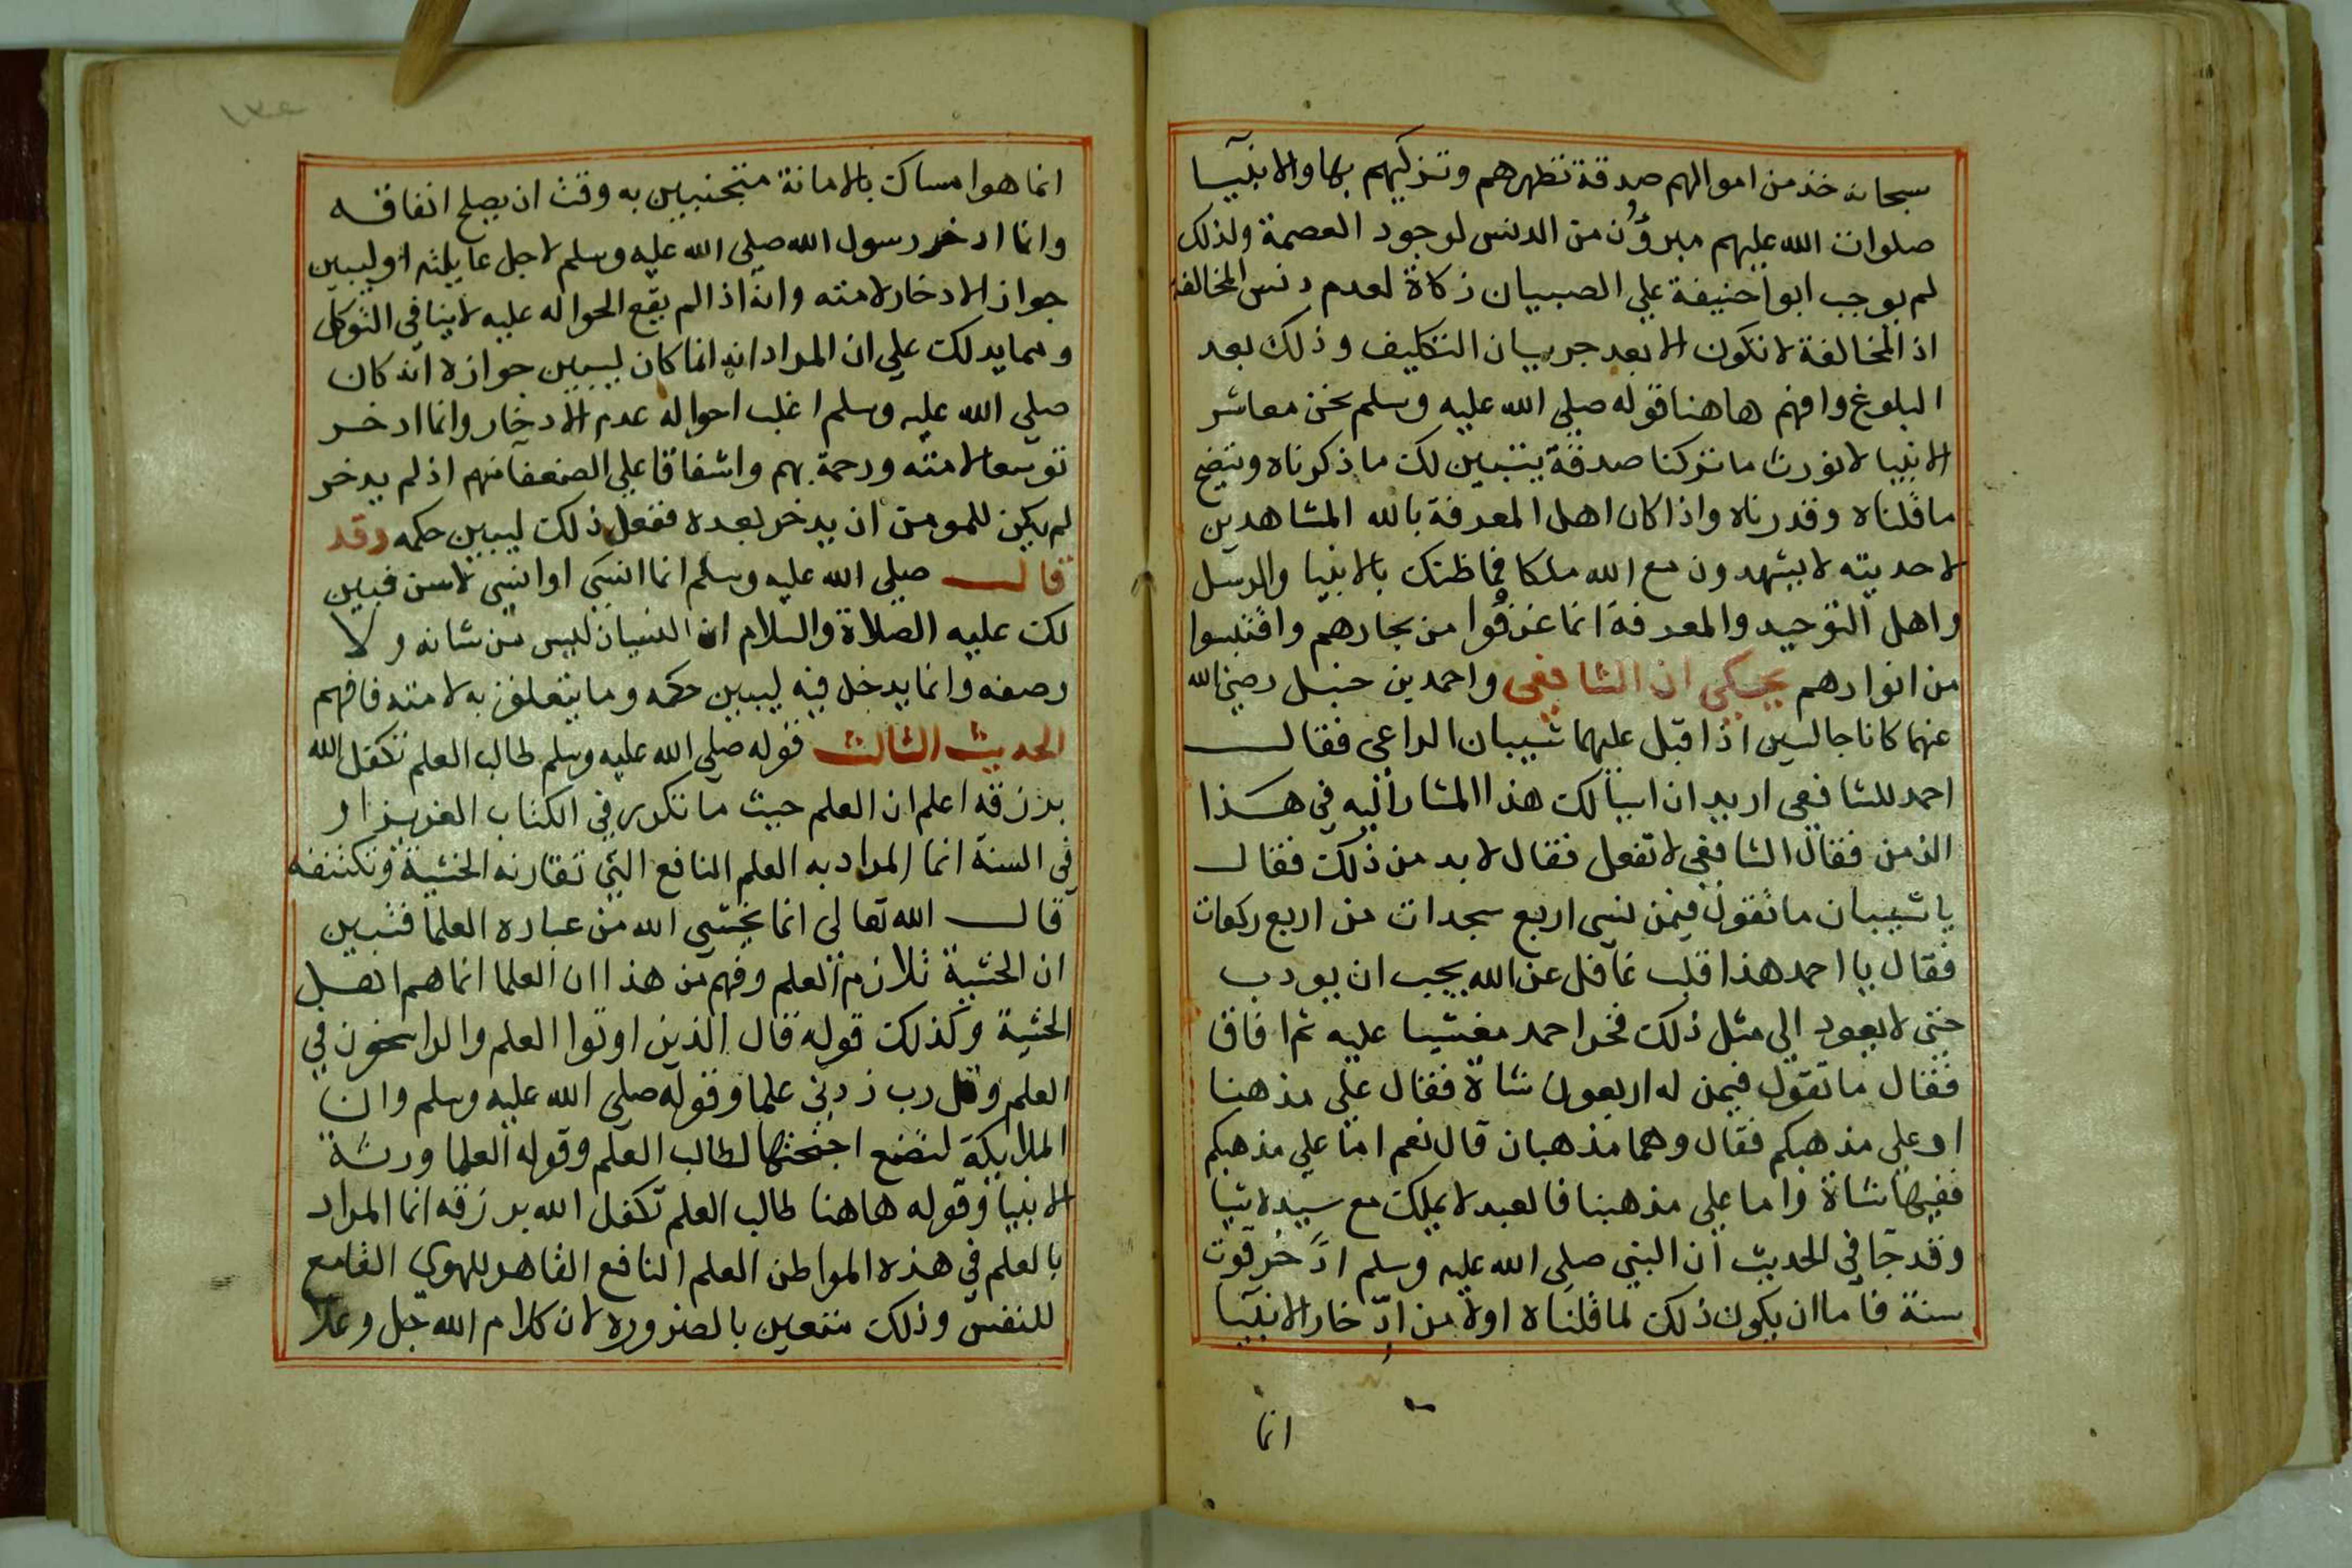 سبحانه خذ من اموالهم صدقة تطهرهم وتزكيهم بها والانبيآ
صلوات الله عليهم مبرؤن من الدنس لوجود العصمة ولذلك
لم يوجب ابوا حنيفة علي الصبيان زكاة لعدم دنس المخالفة
اذ المخالفة لا تكون الا بعد جريان التكليف وذلك بعد
البلوغ وافهم هاهنا قوله صلي الله عليه وسلم نحن معاشر
الانبيا لا نورث ما تركنا صدقة يتبين لك ما ذكرناه ويتضح
ما قلناه وقدرناه واذا كان اهل المعرفة بالله المشاهدين
لاحديته لا يشهدون مع الله ملكا فما ظنك بالانبيا والرسل
واهل التوحيد والمعرفة انما غرفوا من بحارهم واقتبسوا
من انوارهم يحكي ان الشافعي واحمد بن حنبل رضي الله
عنهما كانا جالسين اذ اقبل عليهما شيبان الراعي فقال
احمد للشافعي اريد ان اسألك هذا المشار اليه في هذا
الزمن فقال الشافعي لا تفعل فقال لا بد من ذلك فقال
يا شيبان ما تقول فيمن نسي اربع سجدات من اربع ركعات
فقال يا احمد هذا قلب غافل عن الله يجب ان يودب
حتي لا يعود الي مثل ذلك فخر احمد مغشيا عليه ثم افاق
فقال ما تقول فيمن له اربعون شاة فقال علي مذهبنا
او علي مذهبكم فقال وهما مذهبان قال نعم اما علي مذهبكم
ففيها شاة واما علي مذهبنا فالعبد لا يملك مع سيده شيا
وقد جآ في الحديث ان النبي صلي الله عليه وسلم ادّخر قوت
سنة فاما ان يكون ذلك لما قلناه اولا من ادّخار الانبيآ
انما
انما هو امساك بالامانة متحينين به وقت ان يصلح انفاقه
وانما ادخر رسول الله صلي الله عليه وسلم لاجل عايلته او ليبين
جواز الادخار لامته وانه اذا لم يقع الحواله عليه لا ينافي التوكل
ومما يدلك علي ان المراد انه انما كان ليبين جوازه انه كان
صلي الله عليه وسلم اغلب احواله عدم الادخار وانما ادخر
توسعا لامته ورحمة بهم واشفاقا علي الضعفا منهم اذ لم يدخر
لم يكن للمومن ان يدخر بعده ففعل ذلك ليبين حكمه وقد
قال صلي الله عليه وسلم انما انسي او انسي لاسن فبين
لك عليه الصلاة والسلام ان النسيان ليس من شانه ولا
وصفه وانما يدخل فيه ليبين حكمه وما يتعلق به لامته فافهم
الحديث الثالث قوله صلي الله عليه وسلم طالب العلم تكفل الله
برزقه اعلم ان العلم حيث ما تكرر في الكتاب العزيز او
في السنة انما المراد به العلم النافع التي تقارنه الخشية وتكتنفه
قال الله تعالي انما يخشي الله من عباده العلما فتبين
ان الخشية تلازم العلم وفهم من هذا ان العلما انما هم اهل
الخشية وكذلك قوله قال الذين اوتوا العلم والراسخون في
العلم وقل رب زدني علما وقوله صلي الله عليه وسلم وان
الملايكة لتضع اجنحتها لطالب العلم وقوله العلما ورثة
الانبيا وقوله هاهنا طالب العلم تكفل الله برزقه انما المراد
بالعلم في هذه المواطن العلم النافع القاهر للهوي القامع
للنفس وذلك متعين بالضروره لان كلام الله جل وعلا